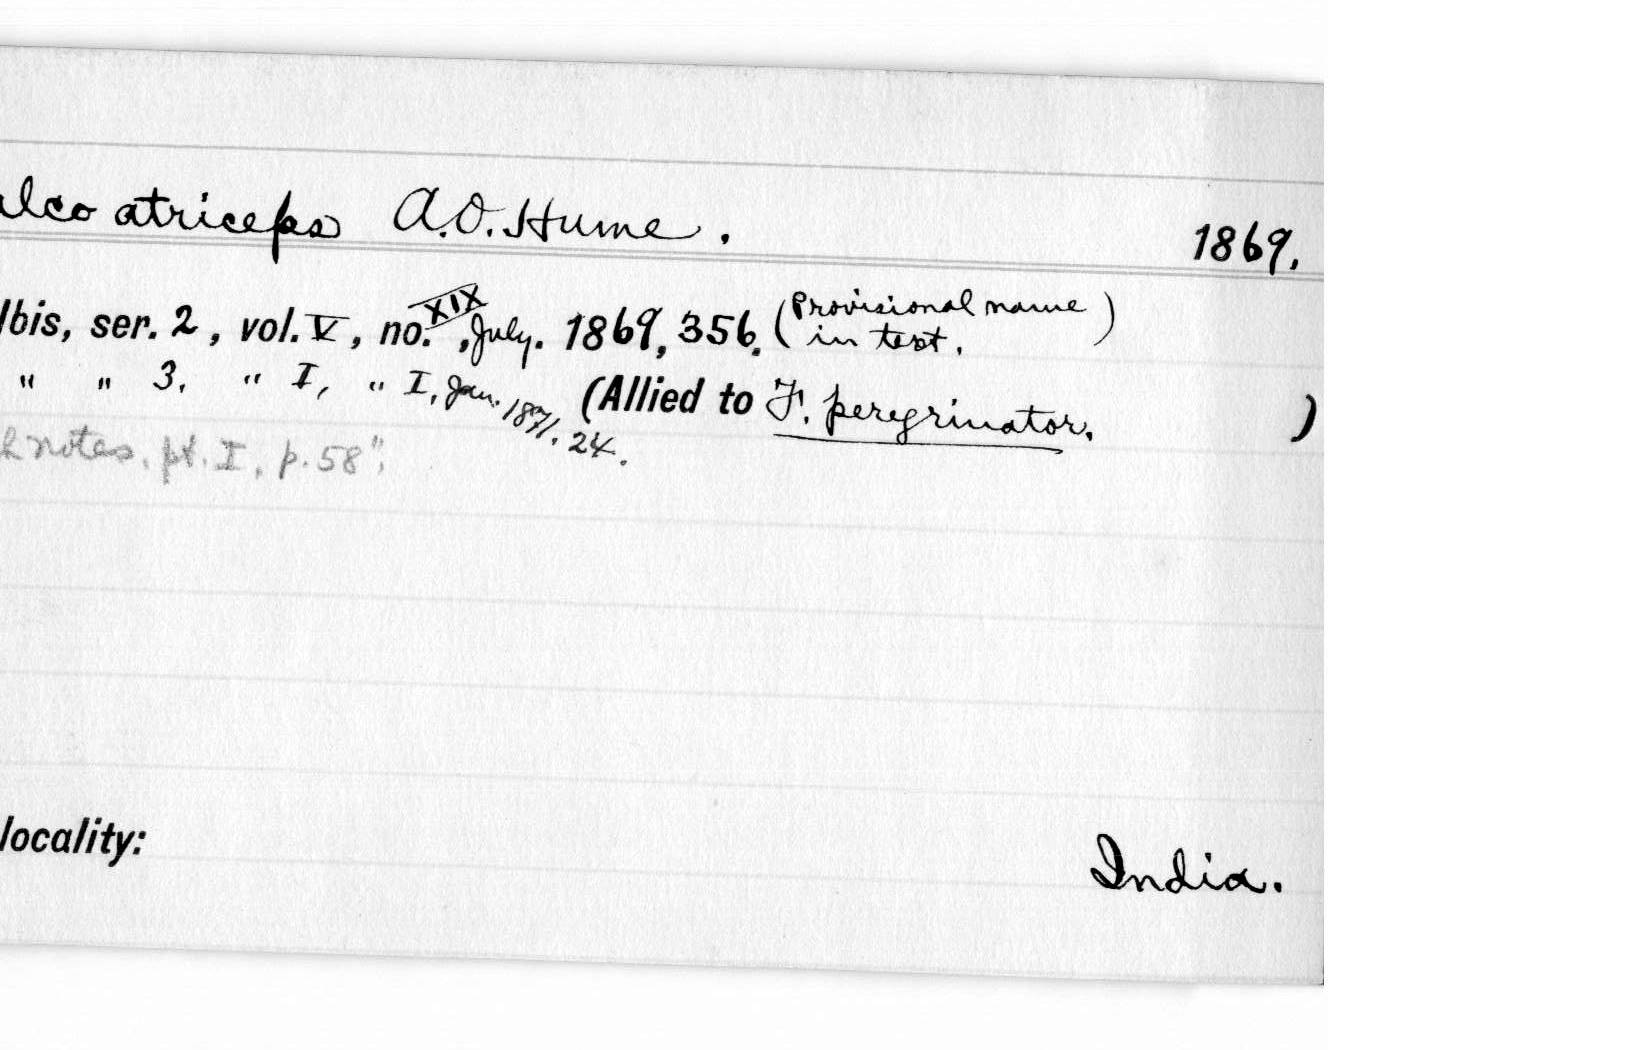 alco atriceps A.O. Hume. 1869.
Ibis, ser. 2, vol. V, no. XIX, July. 1869, 356. (Provisional name in text.)
" " 3. " I, " I, Jan. 1871. 24. (Allied to F. peregrinator. )
h notes, pt. I, p. 58";
locality: India.